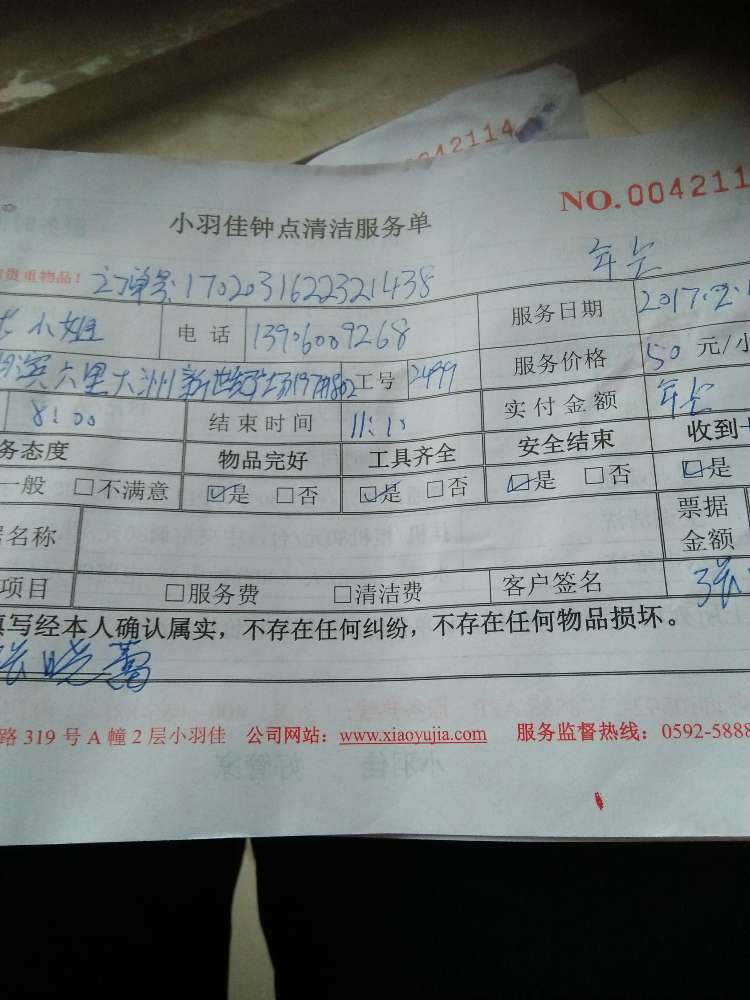 0042114
NO.004211
小羽佳钟点清洁服务单
贵重物品! 订单号:1702031622321438 年卡
小姐 电话 13906009268 服务日期 2017.2.
六里大洲新世纪广场 工号 2499 服务价格 50 元/小
8:00 结束时间 11:10 实付金额 年卡
务态度 物品完好 工具齐全 安全结束 收到
一般 □不满意 ☑是 □否 ☑是 □否 ☑是 □否 ☑是
名称 票据金额
项目 □服务费 □清洁费 客户签名 张
填写经本人确认属实，不存在任何纠纷，不存在任何物品损坏。
张晓
路 319 号 A 幢 2 层小羽佳 公司网站：www.xiaoyujia.com 服务监督热线：0592-5888